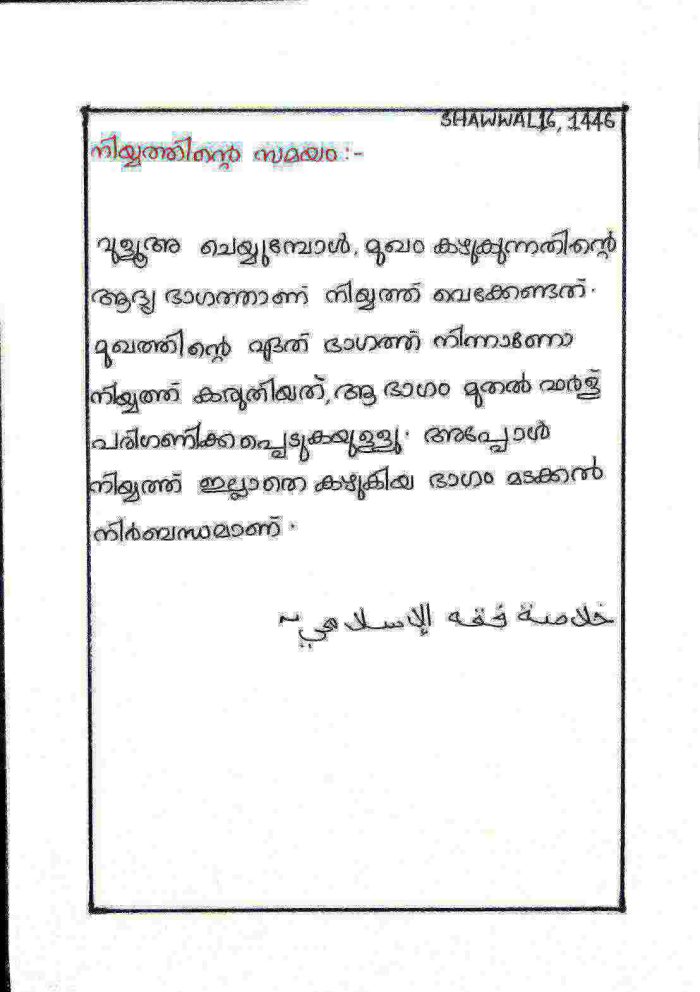 SHAWWAL 16, 1446
നിയ്യത്തിന്റെ സമയം :-
വുളൂഅ ചെയ്യുമ്പോൾ, മുഖം കഴുകുന്നതിന്റെ
ആദ്യ ഭാഗത്താണ് നിയ്യത്ത് വെക്കേണ്ടത്.
മുഖത്തിന്റെ ഏത് ഭാഗത്ത് നിന്നാണോ
നിയ്യത്ത് കരുതിയത്, ആ ഭാഗം മുതൽ ഫർള്
പരിഗണിക്കപ്പെടുകയുള്ളൂ. അപ്പോൾ
നിയ്യത്ത് ഇല്ലാതെ കഴുകിയ ഭാഗം മടക്കൽ
നിർബന്ധമാണ്.
خلاصة فقه الإسلامي ~